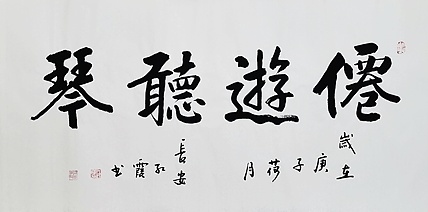 僊遊聽琴
歲在庚子荷月
長安红霞书